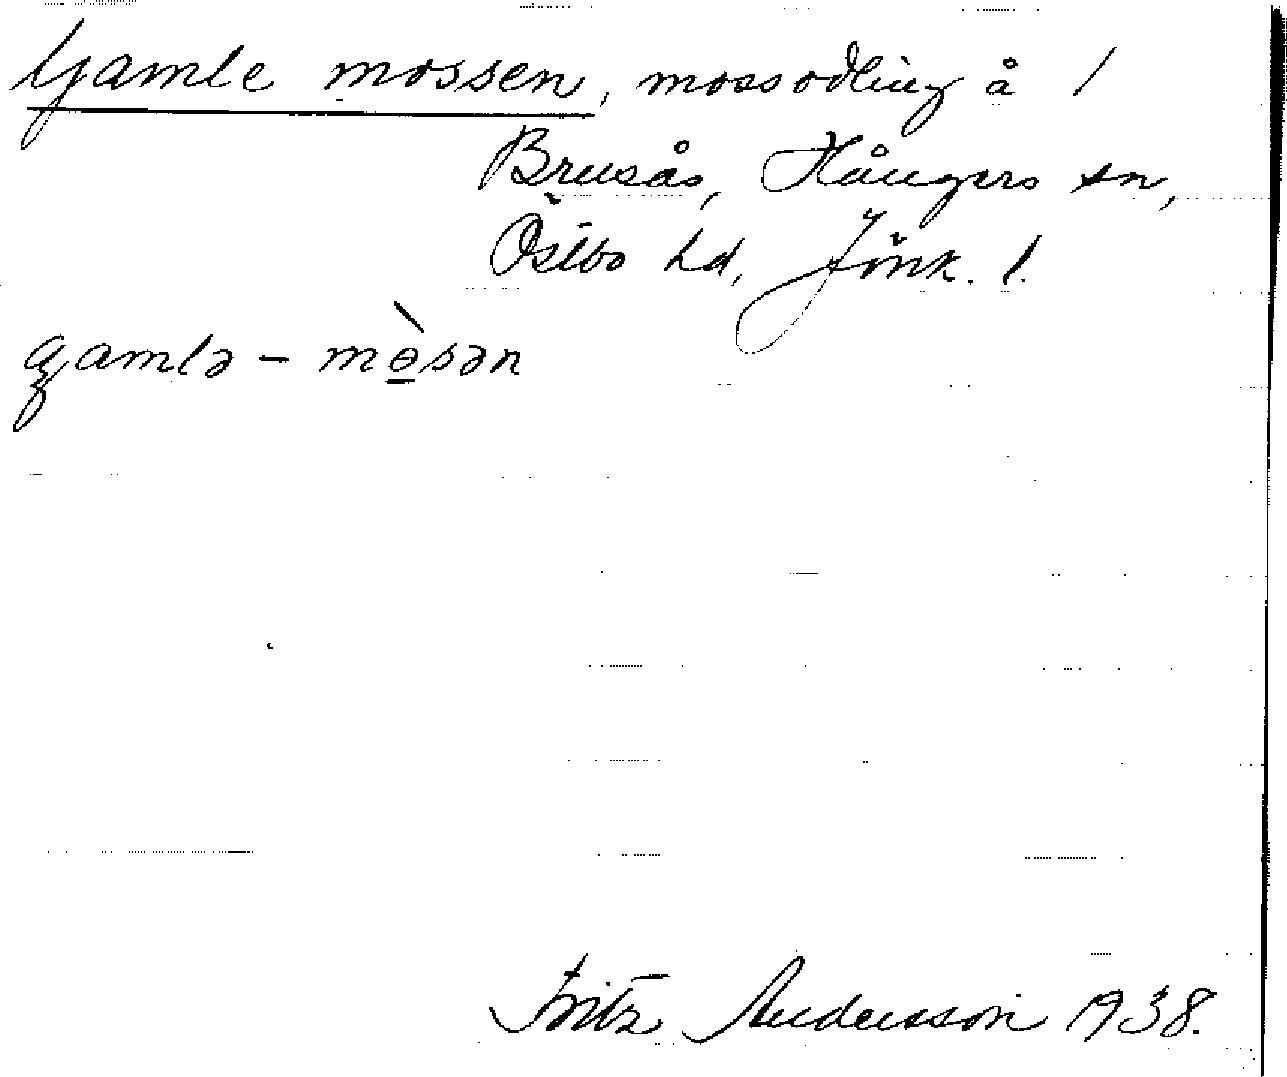 Gamle mossen, mossodling å /
Brusås, Kångers sn,
Östbo hd, Jönk. l.
gamlə - mòsən
Fritz Andersson 1938.